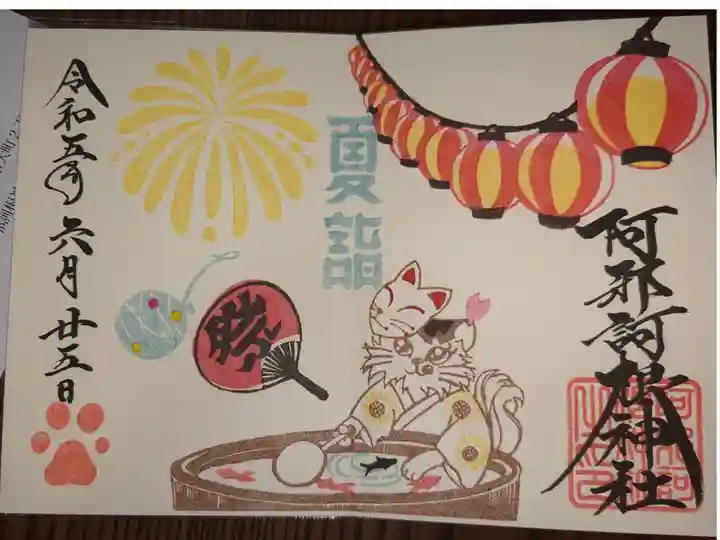 阿邪訶根神社
夏詣
勝
令和五年六月廿五日